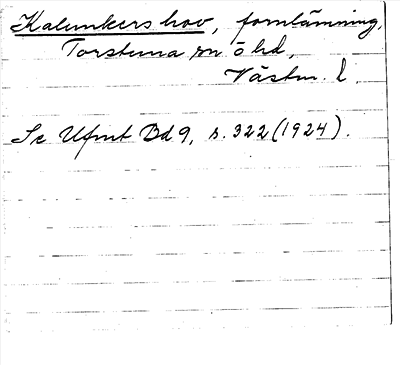 Kalunkers hov, fornlämning,
Torstuna sn. ö hd,
Västm. l.
Se Ufmt Bd 9, s. 322 (1924).